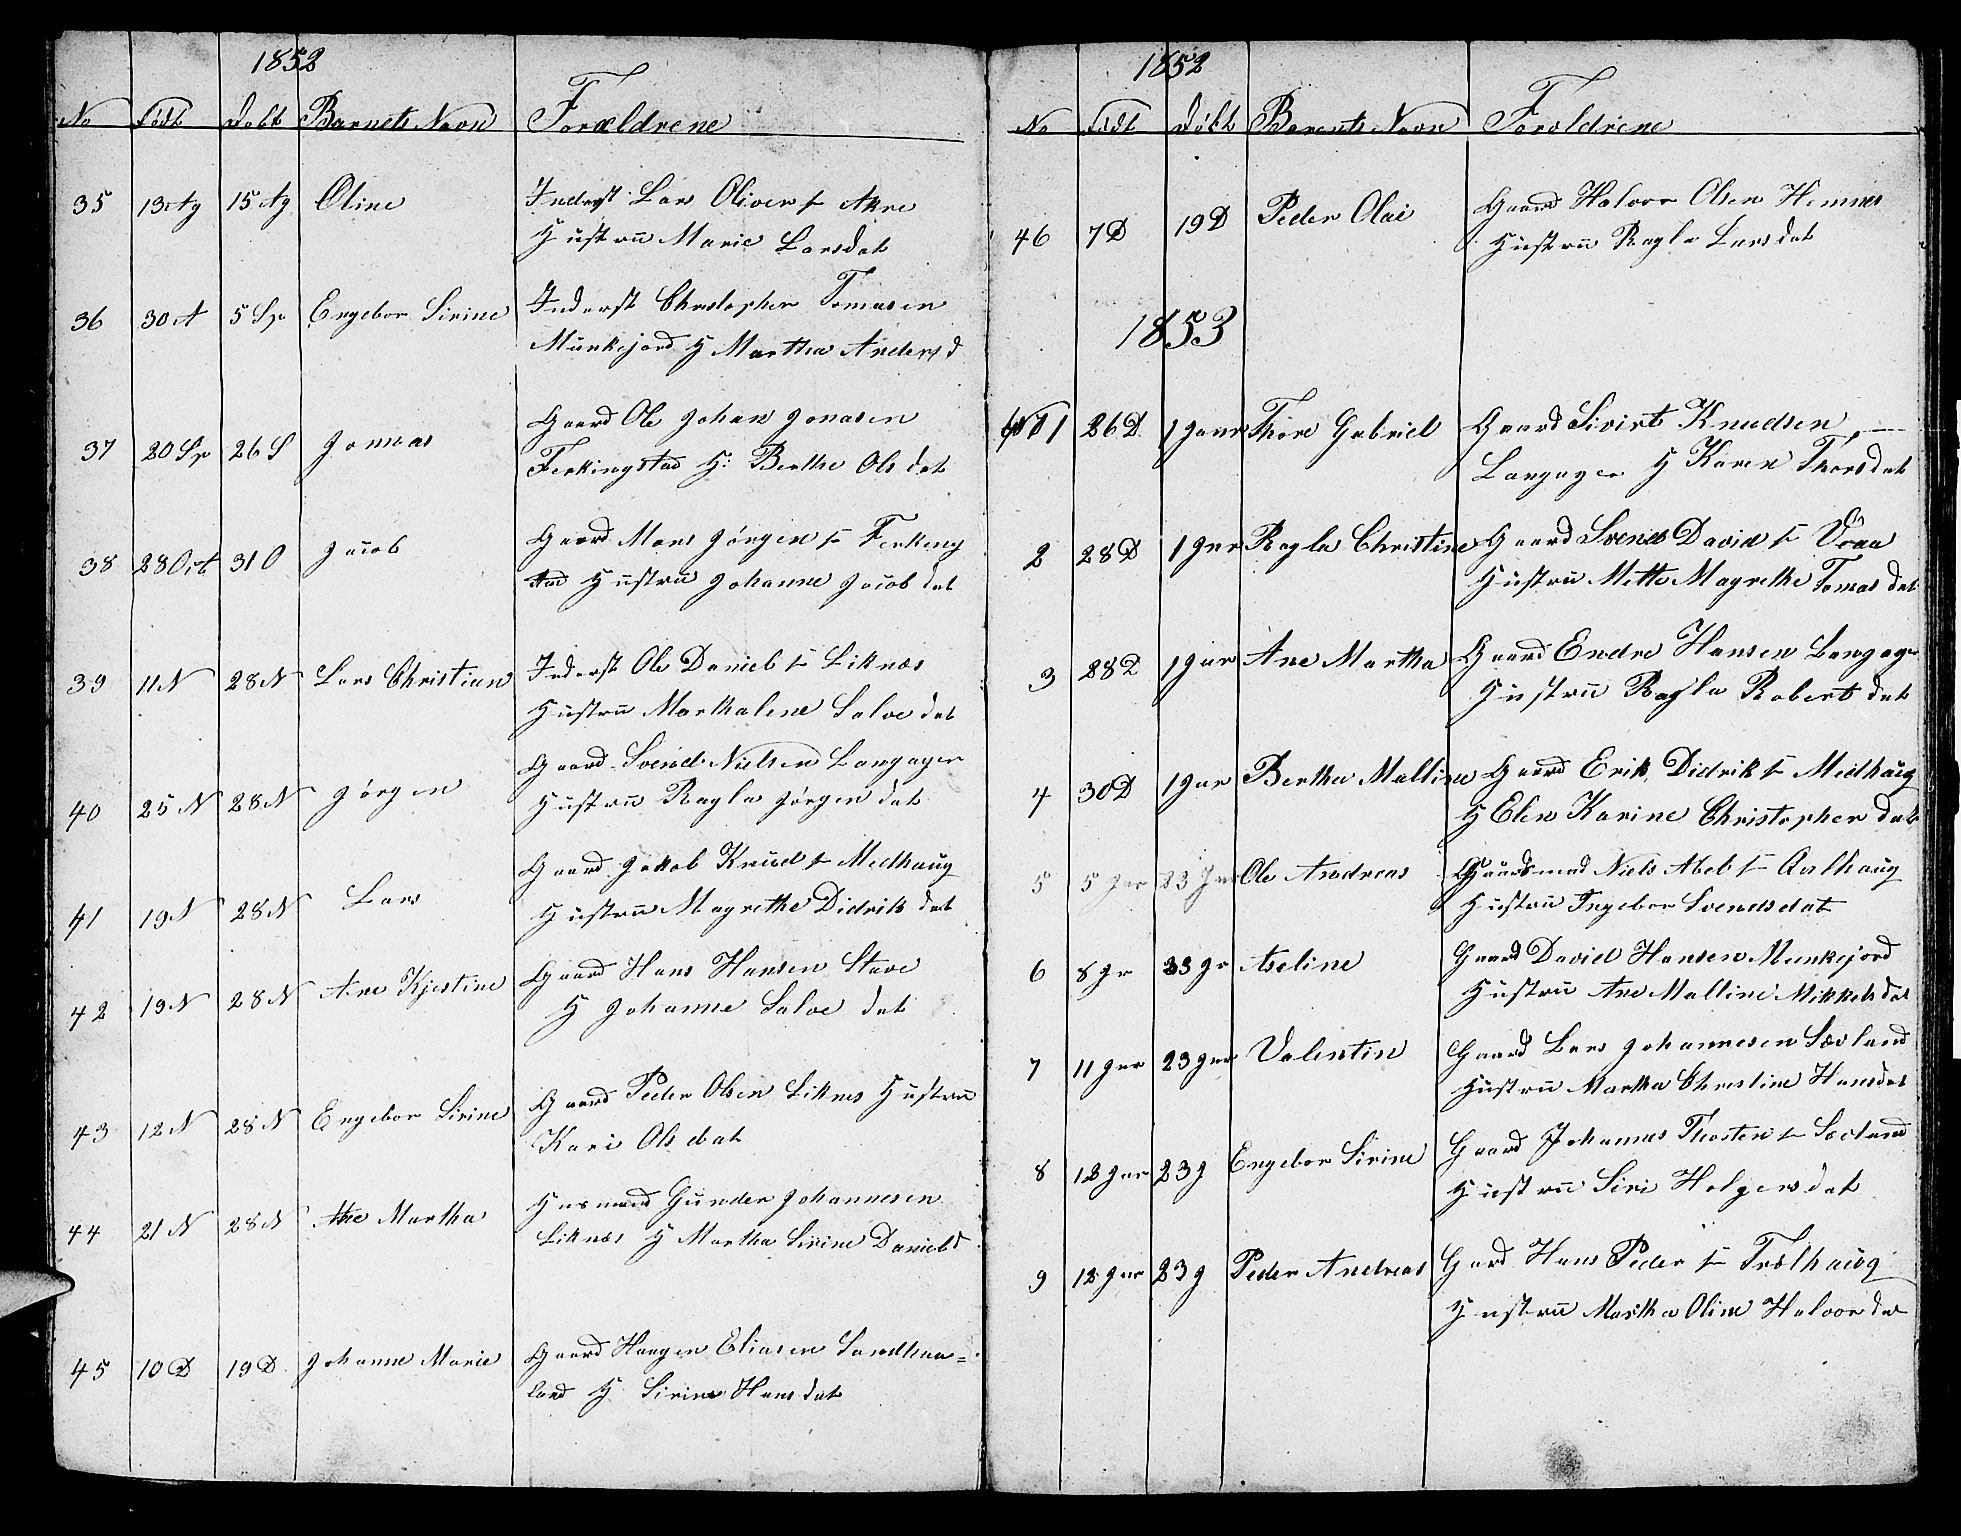 1852
No Født Døbt Barnets Navn Forældrene
35 13 Ag 15 Ag Oline Inderst Lars Olivers f Akre
Hustru Marie Larsdat
36 30 A 5 Sp Engebor Sirine Inderst Christopher Tomasen
Munkejord H Martha Andersd
37 20 Sp 26 S Jonnas Gaard Ole Johan Jonasen
Ferkingstad H: Berthe Olsdat
38 28 Oct 31 O Jacob Gaard Mons Jørgen f Ferking
stad Hustru Johanne Jacobdat
39 11 N 28 N Lars Christian Inderst Ole Daniels f Liknæs
Hustru Marthalene Salvedat
40 25 N 28 N Jørgen Gaard Svend Nielsen Langager
Hustru Ragla Jørgendat
41 19 N 28 N Lars Gaard Jakob Knud f Medhaug
Hustru Magrethe Didriksdat
42 19 N 28 N Ane Kjestine Gaard Hans Hansen Stave
H Johanne Salve dat
43 12 N 28 N Engebor Sirine Gaard Peder Olsen Liknes Hustru
Kari Olsdat
44 21 N 28 N Ane Martha Husmand Gunder Johannesen
Liknæs H Martha Sirine Danielsd
45 10 D 19 D Johanne Marie Gaard Haagen Eliasen Sandhaa=
land H Sirine Hansdat
1852
No Født Døbt Barents Navn Foroldrene
46 7 D 19 D Peder Olai Gaard Halvor Olsen Hemnes
Hustru Ragla Larsdat
1853
No 1 26 D 1 Jaur Thore Gabriel Gaard Sivirt Knudsen
Langager H Karen Thorsdat
2 28 D 1 Jar Ragla Christine Gaard Svend David f Vraa
Hustru Mette Magrethe Tomasdat
3 28 D 1 Jar Ane Martha Gaard Endre Hansen Langager
Hustru Ragla Robertsdat
4 30 D 1 Jar Bertha Malline Gaard Erik Didrik f Medhaug
H Elen Karine Christopherdat
5 5 Jar 23 Jar Ole Andreas Gaardsmad Niels Abels f Aalhaug
Hustru Ingebor Svendsdat
6 8 Jr 23 Jr Aseline Gaard David Hansen Munkejord
Hustru Ane Malline Mikkelsdat
7 11 Jar 23 Jar Valentin Gaard Lars Johannesen Sævland
Hustru Martha Christine Hansdat
8 12 Jar 23 J Engebor Sirine Gaard Johannes Thosten f Sævland
Hustru Siri Holgersdat
9 12 Jar 23 J Peder Andreas Gard Hans Peder f Trælhaug
Hustru Martha Oline Halvordat